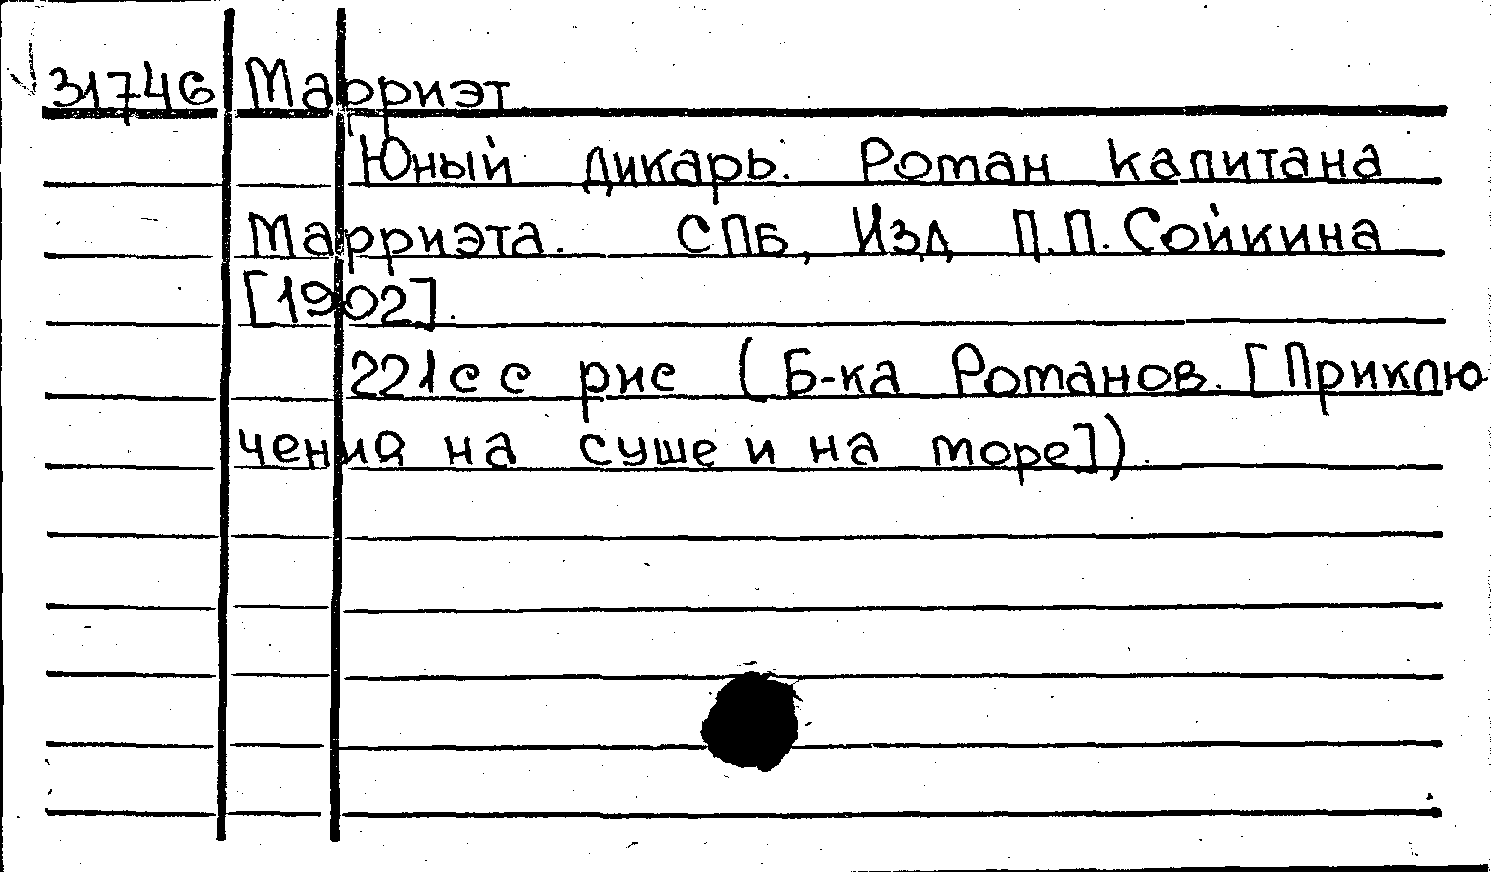 31746 Марриэт
Юный дикарь. Роман капитана
Марриэта. СПБ, Изд П.П. Сойкина
[1902].
221с с рис (Б-ка Романов. [Приклю
чения на суше и на море]).